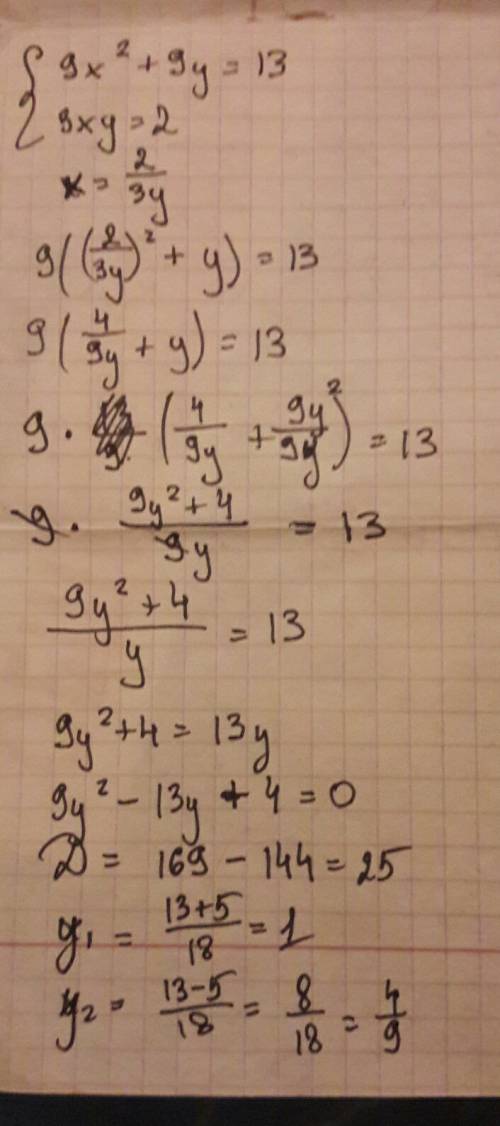 { 9x² + 9y = 13
3xy = 2
x = 2/3y
9((2/3y)² + y) = 13
9(4/9y + y) = 13
9 · (4/9y + 9y²/9y) = 13
9 · (9y² + 4)/9y = 13
(9y² + 4)/y = 13
9y² + 4 = 13y
9y² - 13y + 4 = 0
D = 169 - 144 = 25
y₁ = (13+5)/18 = 1
y₂ = (13-5)/18 = 8/18 = 4/9